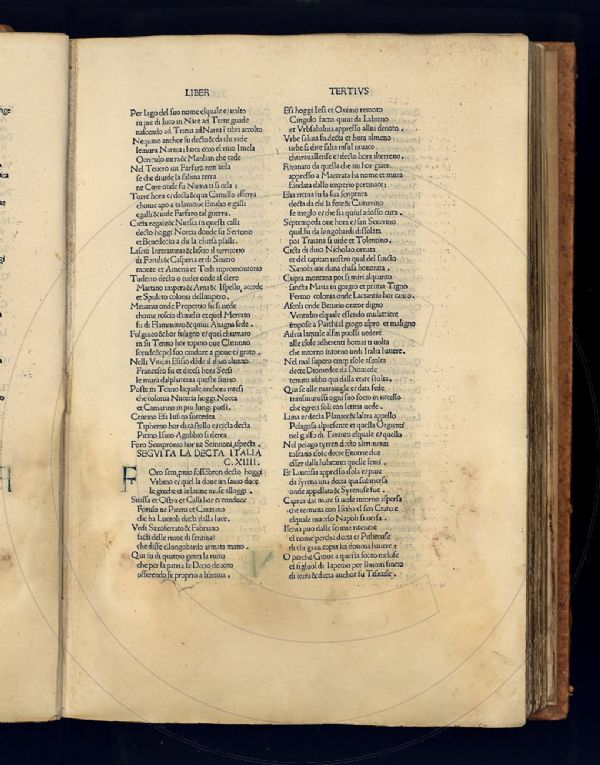 LIBER TERTIVS
Per lago del suo nome elquale e uolto
in pie di luco in Nare ad Terni guade
nascendo ad Treui
Nequino anchor fu decto & da chi rade
lemura Narnia: hora ecco el rino Imela
Ocriculo
Nel Teuero un Farfaro non
se che diuide la sabina terra
ne Cure onde fu Numa ti si cela
Torre hora e decla qua Camillo afferra
chome apo a talamone Emilio e galli
egalli & uude Farfaro tal guerra.
Cicta regale & Nursia in questi calli
decto hoggi Norcia donde fu Sertorio
et Benedecto a diu la chiesa
Lascio Interamnia & lascio il territorio
di Foruli & Casperia et di Seuero
monte et Ameria et Todi inpromontorio
Tuderto decto o tutier onde al clero
Martino impera & Arna & Ispello, accede
et Spuleto colonia dellimpero.
Meuania onde Propertio fu si uede
chome roscio damelia et quel Mercato
fu di Flamminio & quiui Anagna sede.
Fulgineo & hor fuligno e quel chiamato
in su Tenno hor topino oue Clitunno
scende & pel suo candore a gioue e grato.
Nella Vmbri Elisio dode il diuo alunno
Francesco fu et dicesi hora Scesi
le mura dalpharena quasse funno
Poste in Tenno laquale anchora intesi
che colonia Nuceria hoggi Nocea
et Camarino in piu lungi paesi.
Centino Est Iusico
Tipherno hor dicastello e ricicla decta
Pitino Isuuo Agobbio si cierca
Foro Sempronio hor ne Sennoni aspecta.
SEGVITA LA DECTA ITALIA
C.XIIII.
F Oro sempronio fossombron decto hoggi
Vrbino e/ quel la doue un sauio duce
le greche et le latine muse alloggi.
Suassa et Ostra et Galli hor ci conduce
Forulo ne Piceni et Cantiano
che ha Luceoli decti dalla luce.
Vedi Saxoferrato & Fabriano
facti delle ruine di sentina
che disfe elongobardo armata mano.
Qui fu di quattro genti la ruina
che per la patria le Decio deuoto
offerendo se proprio a labtina.
Esi hoggi Iesi et Oximo remoto
Cingulo facto quiui da Labieno
et Vrbsaluia appresso
Vrbe saluia fu decta et hora almeno
urbe si e/ere salta insul
chiarauallense et/ decto hora iherreno.
Ricanato da quella che
appresso a Macerata ha nome et mura
fundata dallo imperio pertinace:
Elia ricina fu la sua scriptura
decta da chi la fece & Camerino
se meglo e/ che sia quiui adosso cura.
Septempeda oue hora e/ san Seuerino
qual fu da longobardi dissolata
poi Traiana si uide et Tolentino.
Cicta di diuo Nicholao ornata
et del capitan nostro qual del sancto
Sanobi uoi duna chasa honorata.
Cupra montana poi si miri alquanto
sancta Maria in gorgo et prima Tigno
Fermo colonia onde Lactantio hor canto.
Ascoli onde Betutio orator digno
Ventidio elquale essendo mulattiere
impose a Parthi il giogo aspro et maligno
Adria laquale alfin puossi uedere
alle isole adherenti homai ti uolta
che intorno intorno uedi Italia hauere.
Nel mal supero cinq isole ascolta
decte Diomedee da Diomede
tenuto iddio qui dalla etate stolta.
Qui se alle marauigle e/ data fede
transmutossi ogni suo socio in uccello
che egreci soli con letitia uede.
Lima e/ decta Planace & laltra appello
Pelagosa alpresente et quella Orgienti
nel golfo di Taranto elquale e/ quello
Nel pelago tyrren di octo altri menti
toscano isole decte Enotrie due
esser dalli habitanti quelle senti.
Et Lucosia appresso isola e/ pure
da Syrena una decta qua submersa
onde appellata & Syrenese fue.
Caprea dal mare si uede intorno aspersa
che termina con Ischia el sen Crateo et
elquale inuerso Napoli si uersa.
Isernia puo dalle scimie ritenere
el nome perche decta et Pithecuse
O perche Gioue a questa socto incluse
et figluol di Iapeto per lhuom finclo
di terra & decta anchor fu Tafiuse.